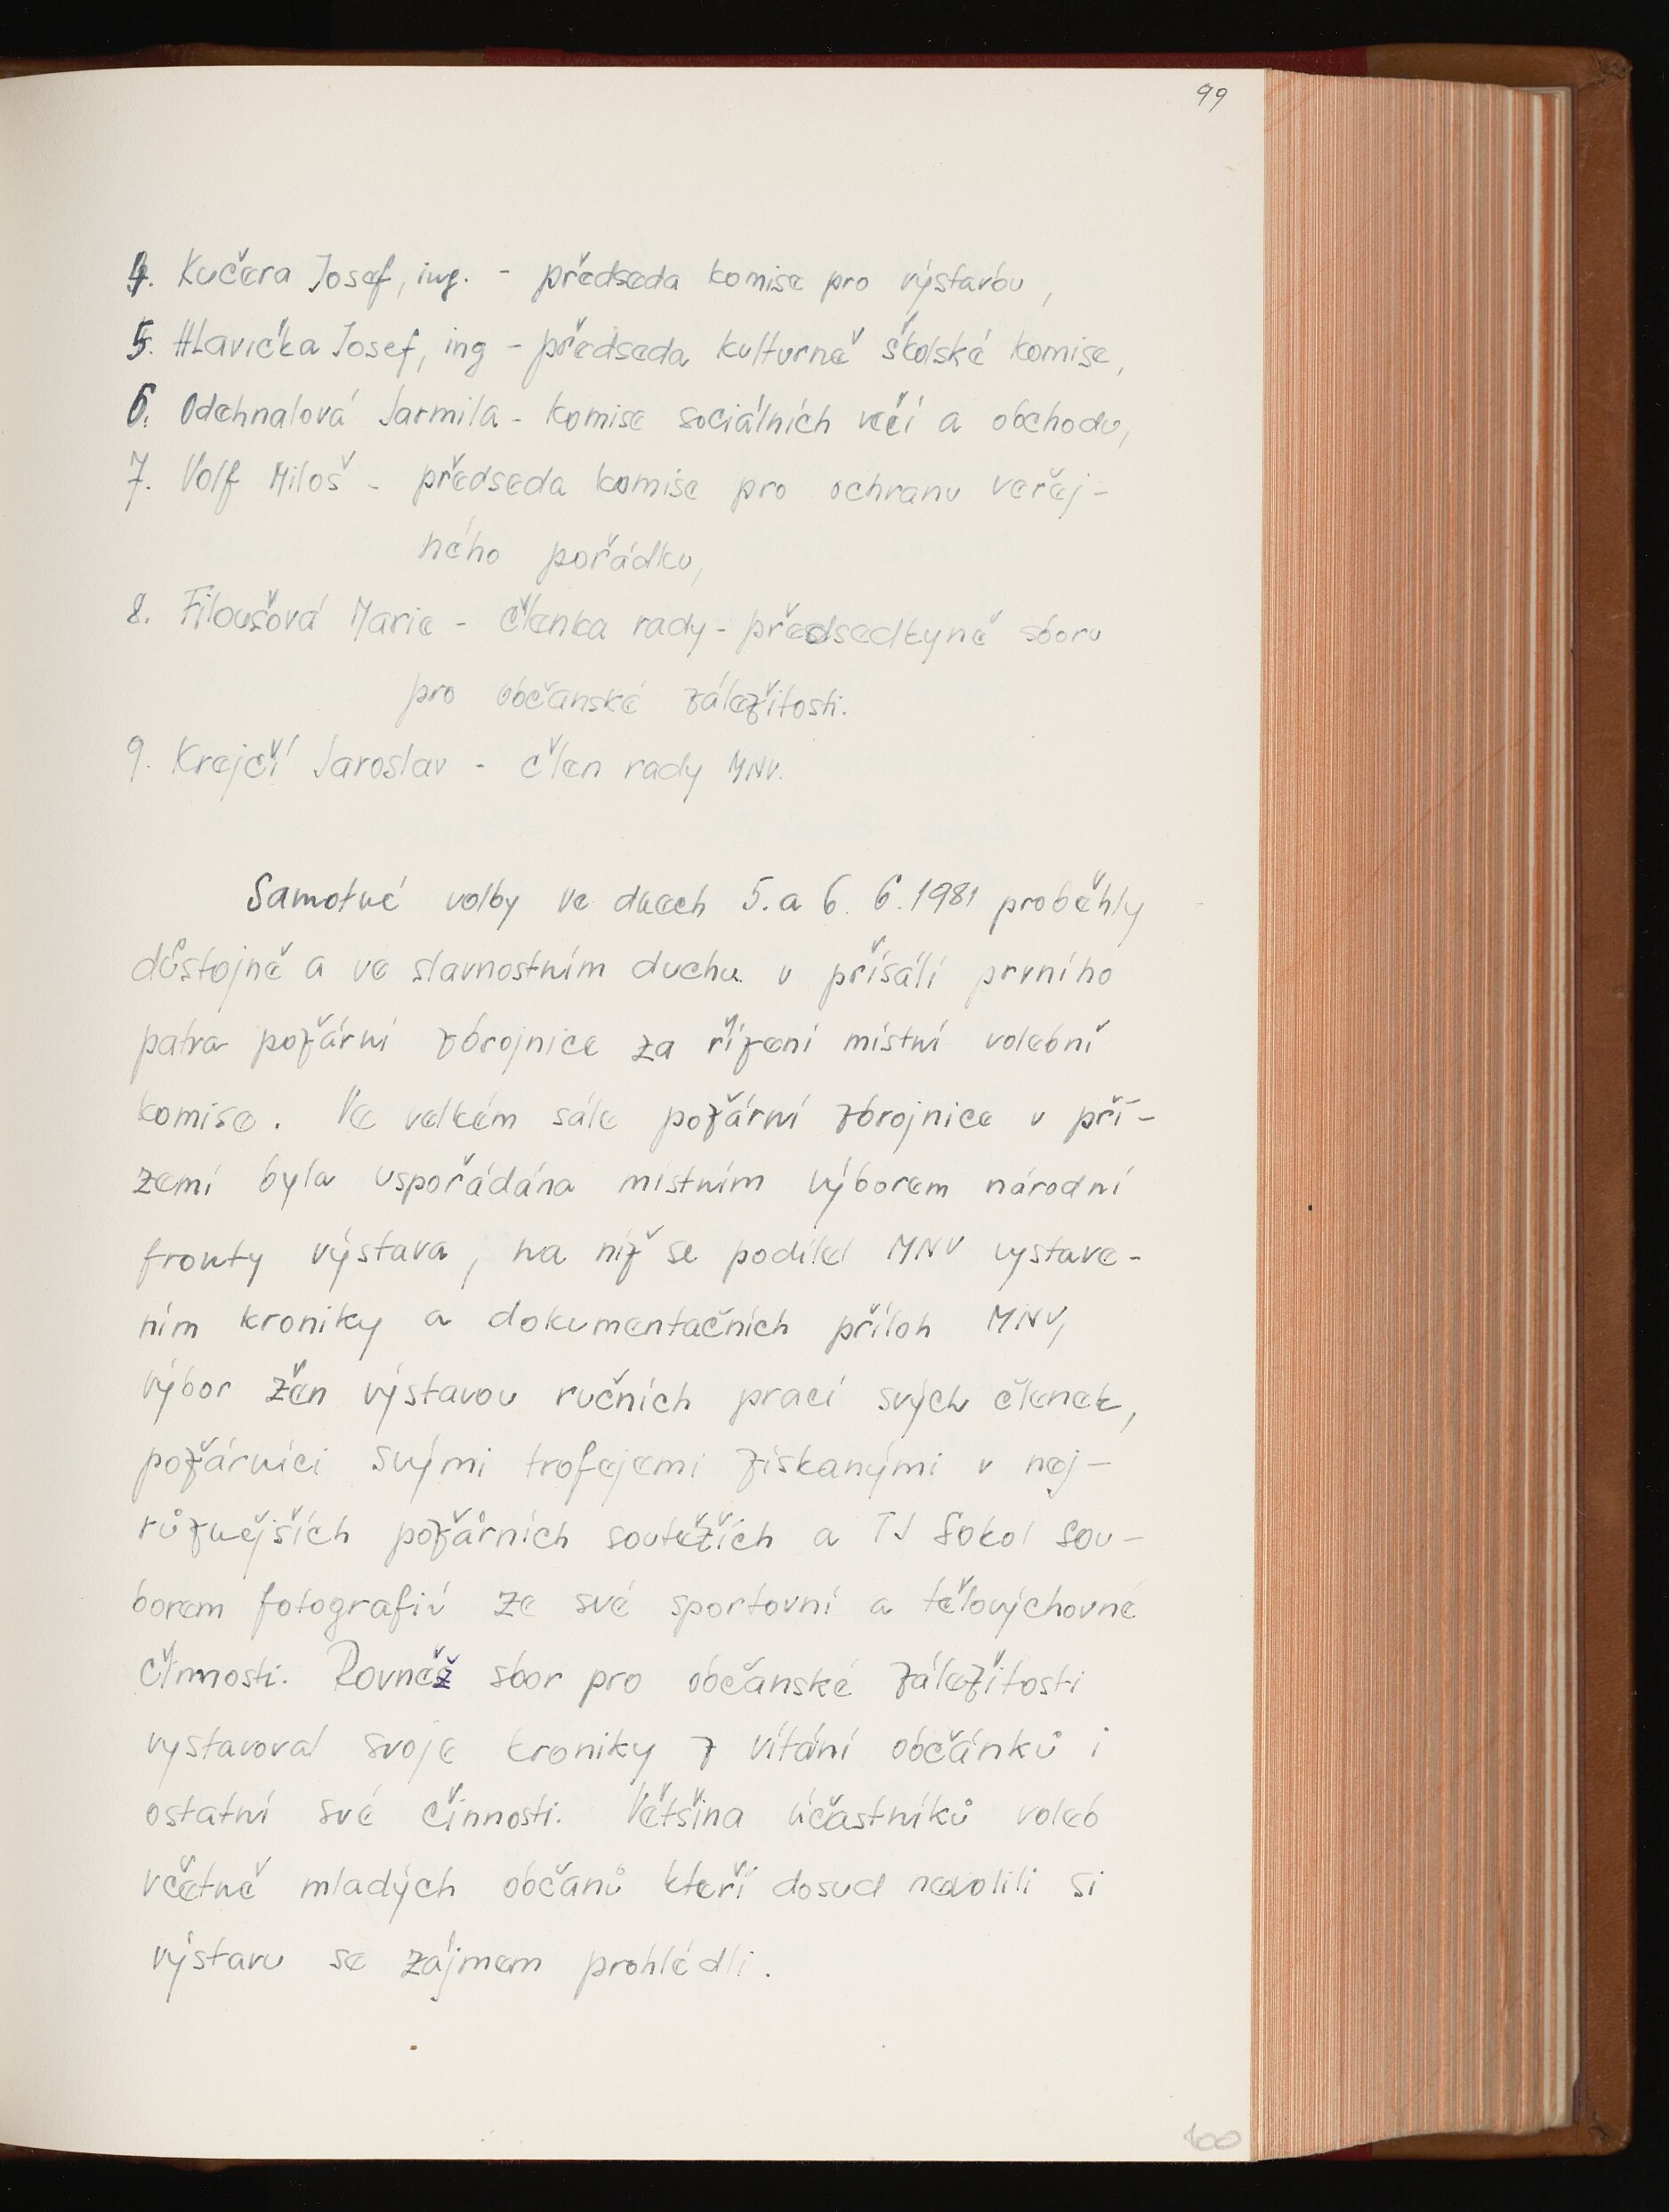 99
4. Kučera Josef, ing. - předseda komise pro výstavbu,
5. Hlavička Josef, ing - předseda kulturně školské komise,
6. Odehnalová Jarmila - komise sociálních věcí a obchodu,
7. Volf Miloš - předseda komise pro ochranu veřej-
ného pořádku,
8. Filoušová Marie - členka rady - předsedkyně sboru
pro občanské záležitosti.
9. Krejčí Jaroslav - člen rady MNV.
Samotné volby ve dnech 5. a 6. 6. 1981 proběhly
důstojně a ve slavnostním duchu v přísálí prvního
patra požární zbrojnice za řízení místní volební
komise. Ve velkém sále požární zbrojnice v pří-
zemí byla uspořádána místním výborem národní
fronty výstava, na níž se podílel MNV vystave-
ním kroniky a dokumentačních příloh MNV,
výbor žen výstavou ručních prací svých členek,
požárníci svými trofejemi získanými v nej-
různějších požárních soutěžích a TJ Sokol sou-
borem fotografií ze své sportovní a tělovýchovné
činnosti. Rovněž sbor pro občanské záležitosti
vystavoval svoje kroniky z vítání občánků i
ostatní své činnosti. Většina účastníků voleb
včetně mladých občanů kteří dosud nevolili si
výstavu se zájmem prohlédli.
100